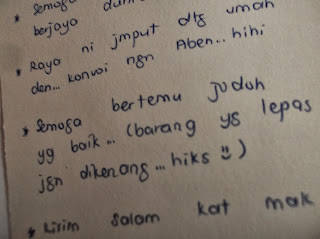 * Semoga
berjaya
* Raya ni jmput dtg umah
den... konvoi ngn Aben... hihi
* Semoga bertemu jodoh
yg baik... (barang yg lepas
jgn dikenang... hiks ☺)
* Kirim salam kat mak